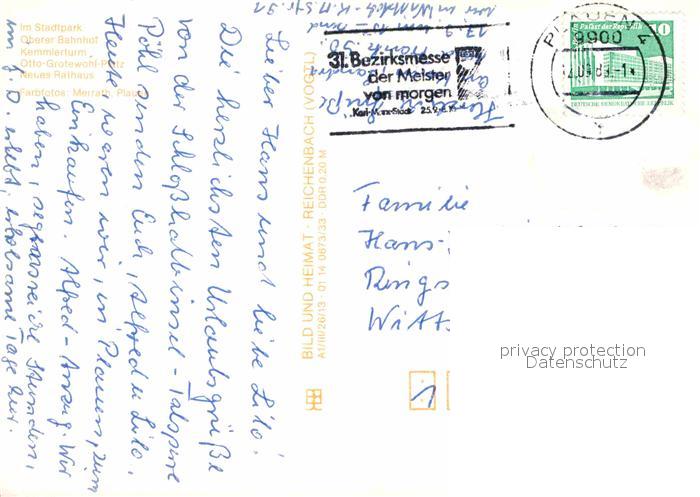 Im Stadtpark
Oberer Bahnhof
Kemmlerturm
Otto-Grotewohl-Platz
Neues Rathaus
Farbfotos: Merrath, Plauen
Lieber Hans und liebe Lilo!
Die herzlichsten Urlaubsgrüße
von der Schloßhalbinsel - Talsperre
Pöhl senden Euch, Alfred u. Lilo.
Heute waren wir, in Plauen, zum
Einkaufen. Alfred - Anzug. Wir
haben, segensreiche Stunden,
im g. D. erlebt, erholsame Tage zur.
BILD UND HEIMAT · REICHENBACH (VOGTL)
A1/III/26/13 01 14 0673/33 DDR 0,20 M
31. Bezirksmesse
der Meister
von morgen
Karl-Marx-Stadt
PLAUEN 4
9900
Palast der Republik
10
DEUTSCHE DEMOKRATISCHE REPUBLIK
Familie
Hans-
Rings
Witt
1
privacy protection
Datenschutz